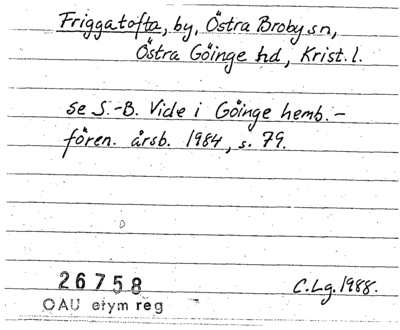 Friggatofta, by, Östra Broby sn,
Östra Göinge hd, Krist. l.
se S.-B. Vide i Göinge hemb.-
fören. årsb. 1984, s. 79.
26758
OAU etym reg
C.Lg. 1988.